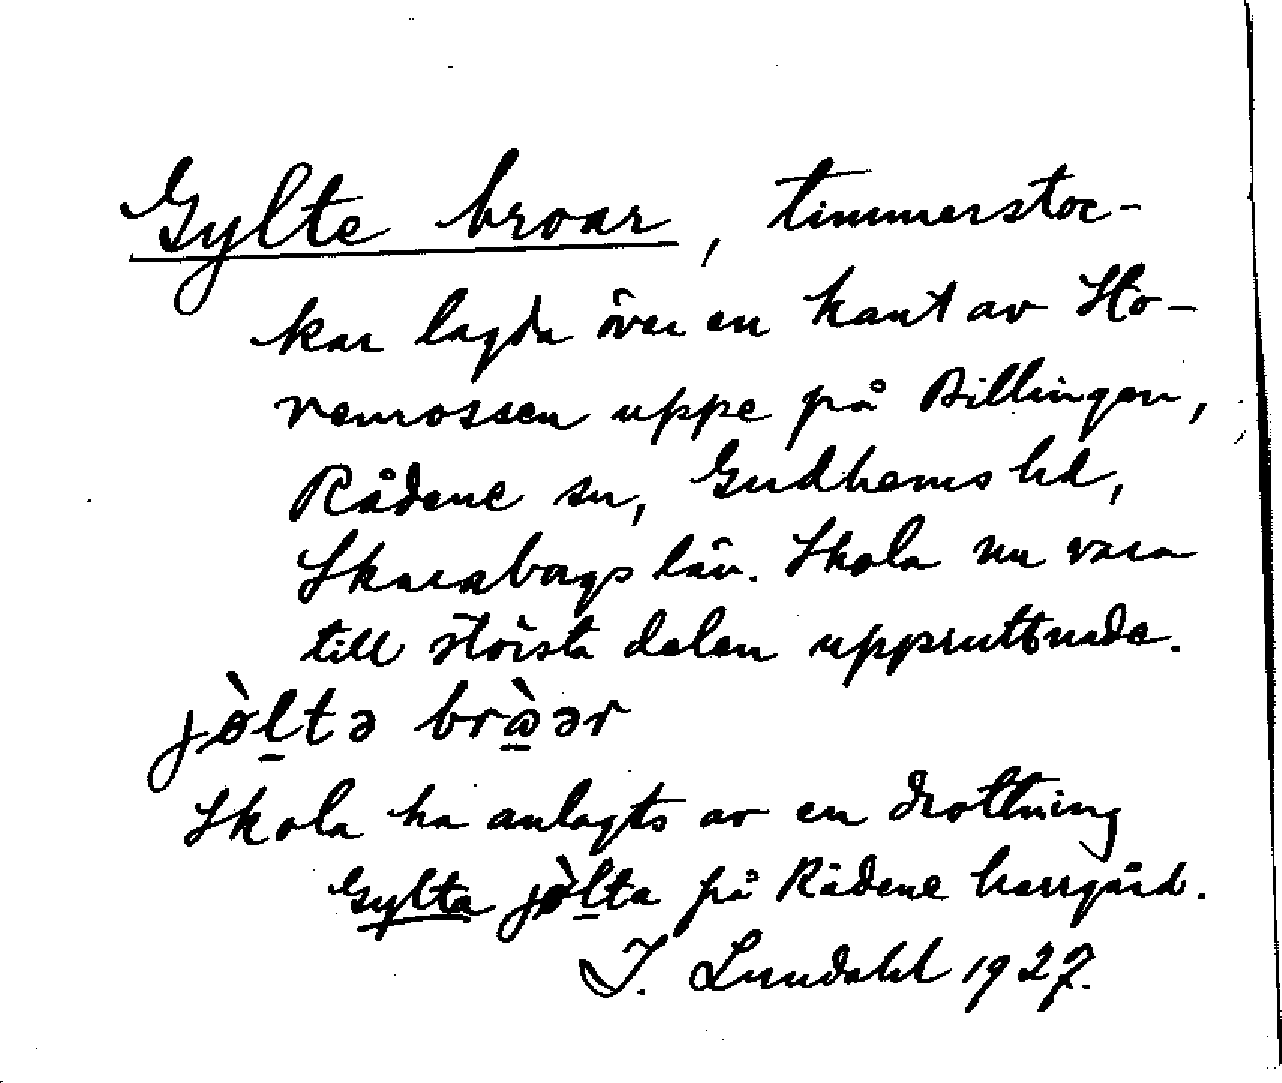 Gylte broar, timmerstoc-
kar lagda över en kant av Ho-
vemossen uppe på Billingen,
Rådene sn, Gudhems hd,
Skaraborgs län. Skola nu vara
till största delen uppruttnade.
jø̀l̠tə brὼ̠ər
Skola ha anlagts av en drottning
Gylta jø̀l̠ta på Rådene herrgård.
I. Lundahl 1927.